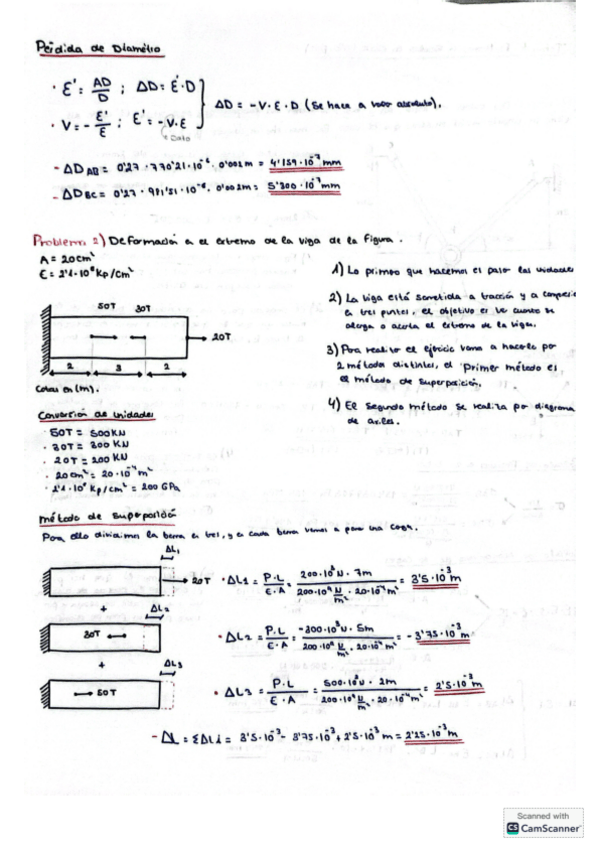 Pérdida de Diámetro
· Ɛ' = ΔD/D ; ΔD = Ɛ'·D
· V = - Ɛ'/Ɛ ; Ɛ' = -V·Ɛ
→ Dato
ΔD = -V·Ɛ·D (Se hace a valor absoluto).
- ΔD AB = 0'27 · 770'21·10⁻⁶ · 0'002m = 4'159·10⁻⁷ mm
- ΔD BC = 0'27 · 981'51·10⁻⁶ · 0'002m = 5'300·10⁻⁷ mm
Problema 2) Deformación en el extremo de la viga de la figura.
A = 20cm²
Ɛ = 2'1·10⁶ Kp/cm²
50T 30T
20T
2 3 2
Cotas en (m).
1) Lo primero que hacemos es pasar las unidades
2) La viga está sometida a tracción y a
en tres puntos, el objetivo es ver cuanto se
alarga o acorta el extremo de la viga.
3) Para realizar el ejercicio vamos a hacerlo por
2 métodos distintos, el Primer método es
el método de superposición.
4) El segundo método se realiza por diagrama
de axiles.
Conversión de unidades
· 50T = 500KN
· 30T = 300 KN
· 20T = 200 KN
· 20cm² = 20·10⁻⁴m²
· 2'1·10⁶ Kp/cm² = 200 GPa
método de Superposición
Para ello dividimos la barra en tres, y a cada barra vamos a poner una carga.
ΔL₁
20T
· ΔL1 = P·L/Ɛ·A = 200·10³N · 7m / 200·10⁹ N/m² · 20·10⁻⁴m² = 3'5·10⁻³ m
+
ΔL₂
30T
· ΔL2 = P·L/Ɛ·A = -300·10³N · 5m / 200·10⁹ N/m² · 20·10⁻⁴m² = -3'75·10⁻³ m
+
ΔL₃
50T
· ΔL3 = P·L/Ɛ·A = 500·10³N · 2m / 200·10⁹ N/m² · 20·10⁻⁴m² = 2'5·10⁻³ m
- ΔL = ΣΔLi = 3'5·10⁻³ - 3'75·10⁻³ + 2'5·10⁻³ m = 2'25·10⁻³ m
Scanned with
CS CamScanner